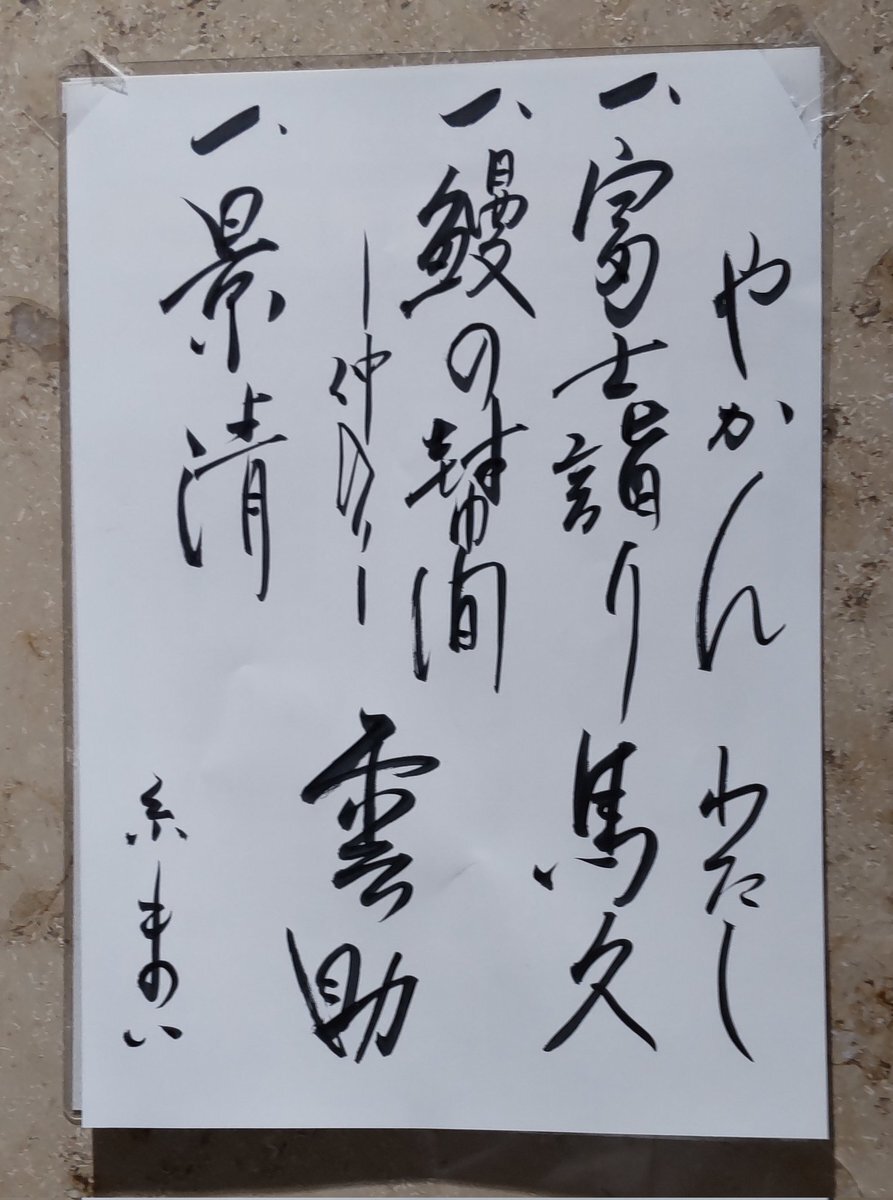 やかん わたし
一、富士詣り 馬久
一、鰻の幇間
―仲入り― 雲助
一、景清
糸